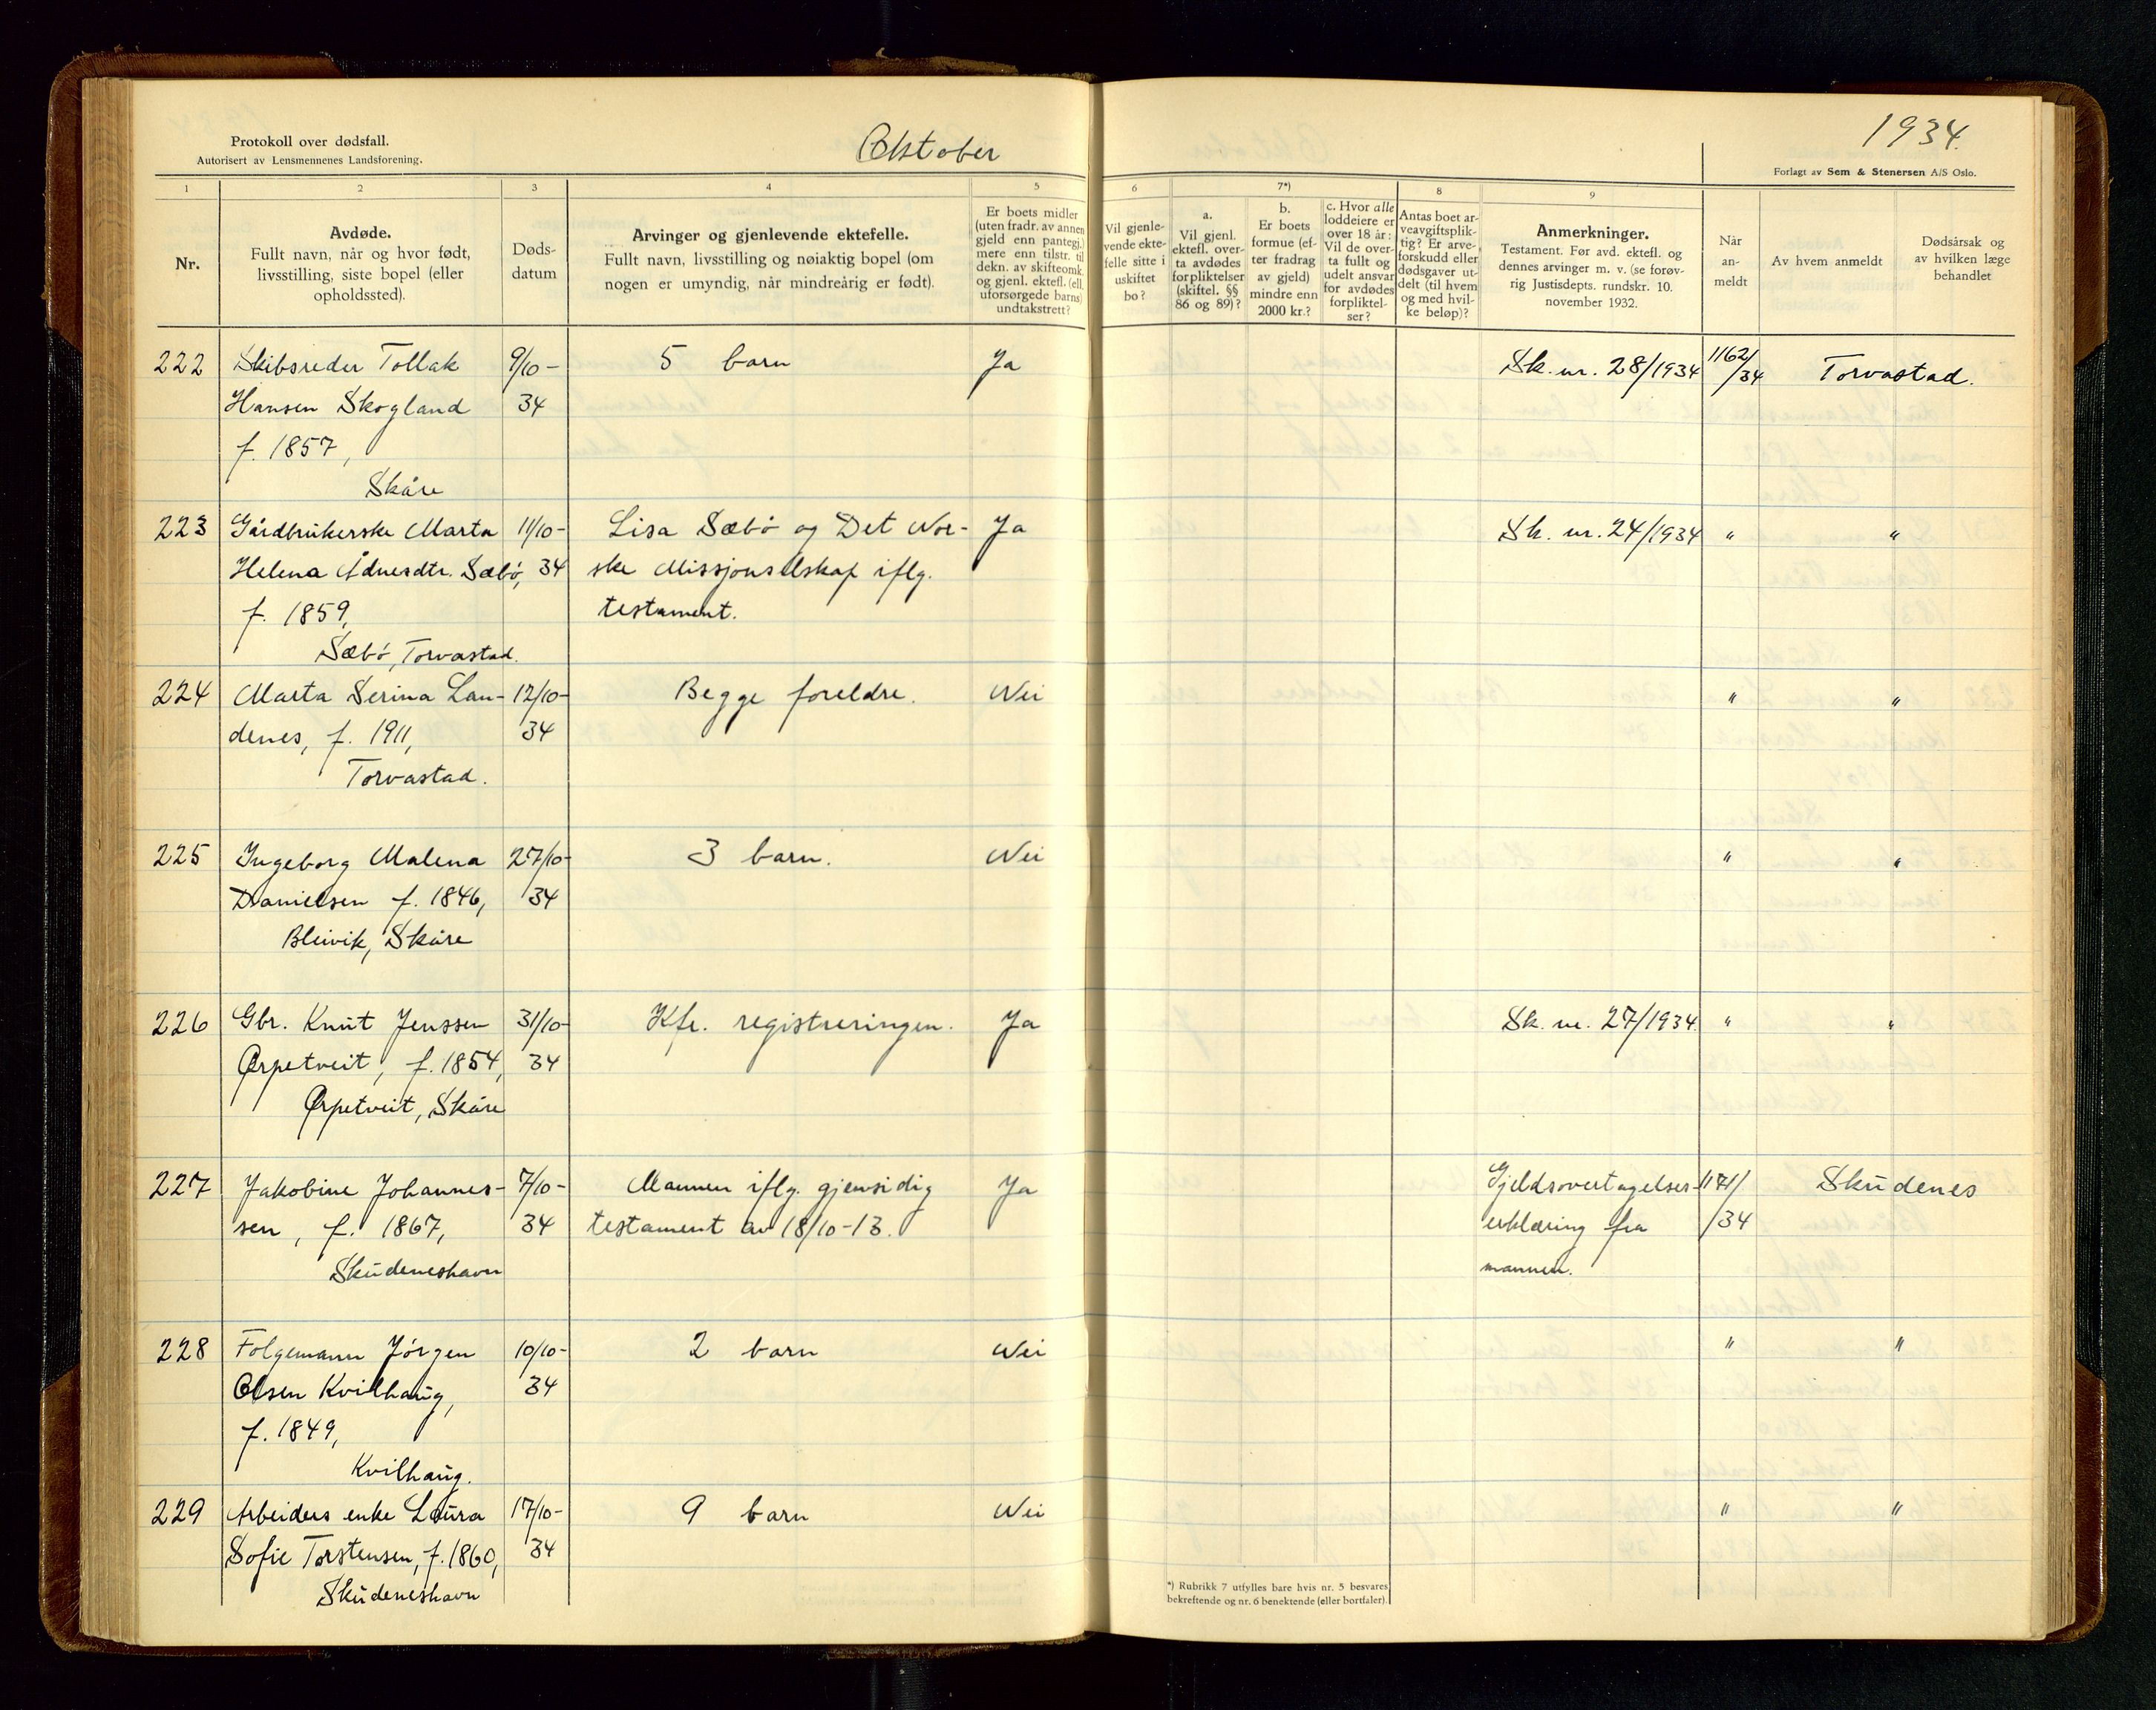 Protokoll over dødsfall.
Autorisert av Lensmennenes Landsforening.
Oktober
1934.
Forlagt av Sem & Stenersen A/S Oslo.
1 2 3 4 5 6 7*) 8 9
Nr.
Avdøde.
Fullt navn, når og hvor født,
livsstilling, siste bopel (eller
opholdssted).
Døds-
datum
Arvinger og gjenlevende ektefelle.
Fullt navn, livsstilling og nøiaktig bopel (om
nogen er umyndig, når mindreårig er født).
Er boets midler
(uten fradr. av annen
gjeld enn pantegj.)
mere enn tilstr. til
dekn. av skifteomk.
og gjenl. ektefl. (ell.
uforsørgede barns)
undtakstrett?
Vil gjenle-
vende ekte-
felle sitte i
uskiftet
bo?
a.
Vil gjenl.
ektefl. over-
ta avdødes
forpliktelser
(skiftel. §§
86 og 89)?
b.
Er boets
formue (ef-
ter fradrag
av gjeld)
mindre enn
2000 kr.?
c. Hvor alle
loddeiere er
over 18 år:
Vil de over-
ta fullt og
udelt ansvar
for avdødes
forpliktel-
ser?
Antas boet ar-
veavgiftsplik-
tig? Er arve-
forskudd eller
dødsgaver ut-
delt (til hvem
og med hvil-
ke beløp)?
Anmerkninger.
Testament. Før avd. ektefl. og
dennes arvinger m. v. (se forøv-
rig Justisdepts. rundskr. 10.
november 1932.
Når
an-
meldt
Av hvem anmeldt
Dødsårsak og
av hvilken læge
behandlet
222 Skibsreder Tollak 9/10- 5 barn Ja Sk. nr. 28/1934 1162/ Torvastad.
Hansen Skogland 34 /34
f. 1857,
Skåre
223 Gårdbrukerske Marta 11/10- Lisa Sæbø og Det Nor- Ja Sk. nr. 24/1934 " "
Helena Ådnesdtr. Sæbø, 34 ske Missjonselskap iflg.
f. 1859, testament.
Sæbø, Torvastad.
224 Marta Serina Lan- 12/10- Begge foreldre. Nei " "
denes, f. 1911, 34
Torvastad.
225 Ingeborg Malena 27/10- 3 barn. Nei " "
Danielsen f. 1846, 34
Bleivik, Skåre
226 Gbr. Knut Jenssen 31/10- Kfr. registreringen. Ja Sk. nr. 27/1934. " "
Ørpetveit, f. 1854, 34
Ørpetveit, Skåre
227 Jakobine Johannes- 7/10- Mannen iflg. gjensidig Ja Gjeldsovertagelses- 1171/ Skudenes
sen, f. 1867, 34 testament av 18/10-13. erklæring fra /34
Skudeneshavn mannen.
228 Folgemann Jørgen 10/10- 2 barn Nei " "
Olsen Kvilhaug, 34
f. 1849,
Kvilhaug.
229 Arbeiders enke Laura 17/10- 9 barn Nei " "
Sofie Torstensen, f. 1860, 34
Skudeneshavn
*) Rubrikk 7 utfylles bare hvis nr. 5 besvares
bekreftende og nr. 6 benektende (eller bortfaler).